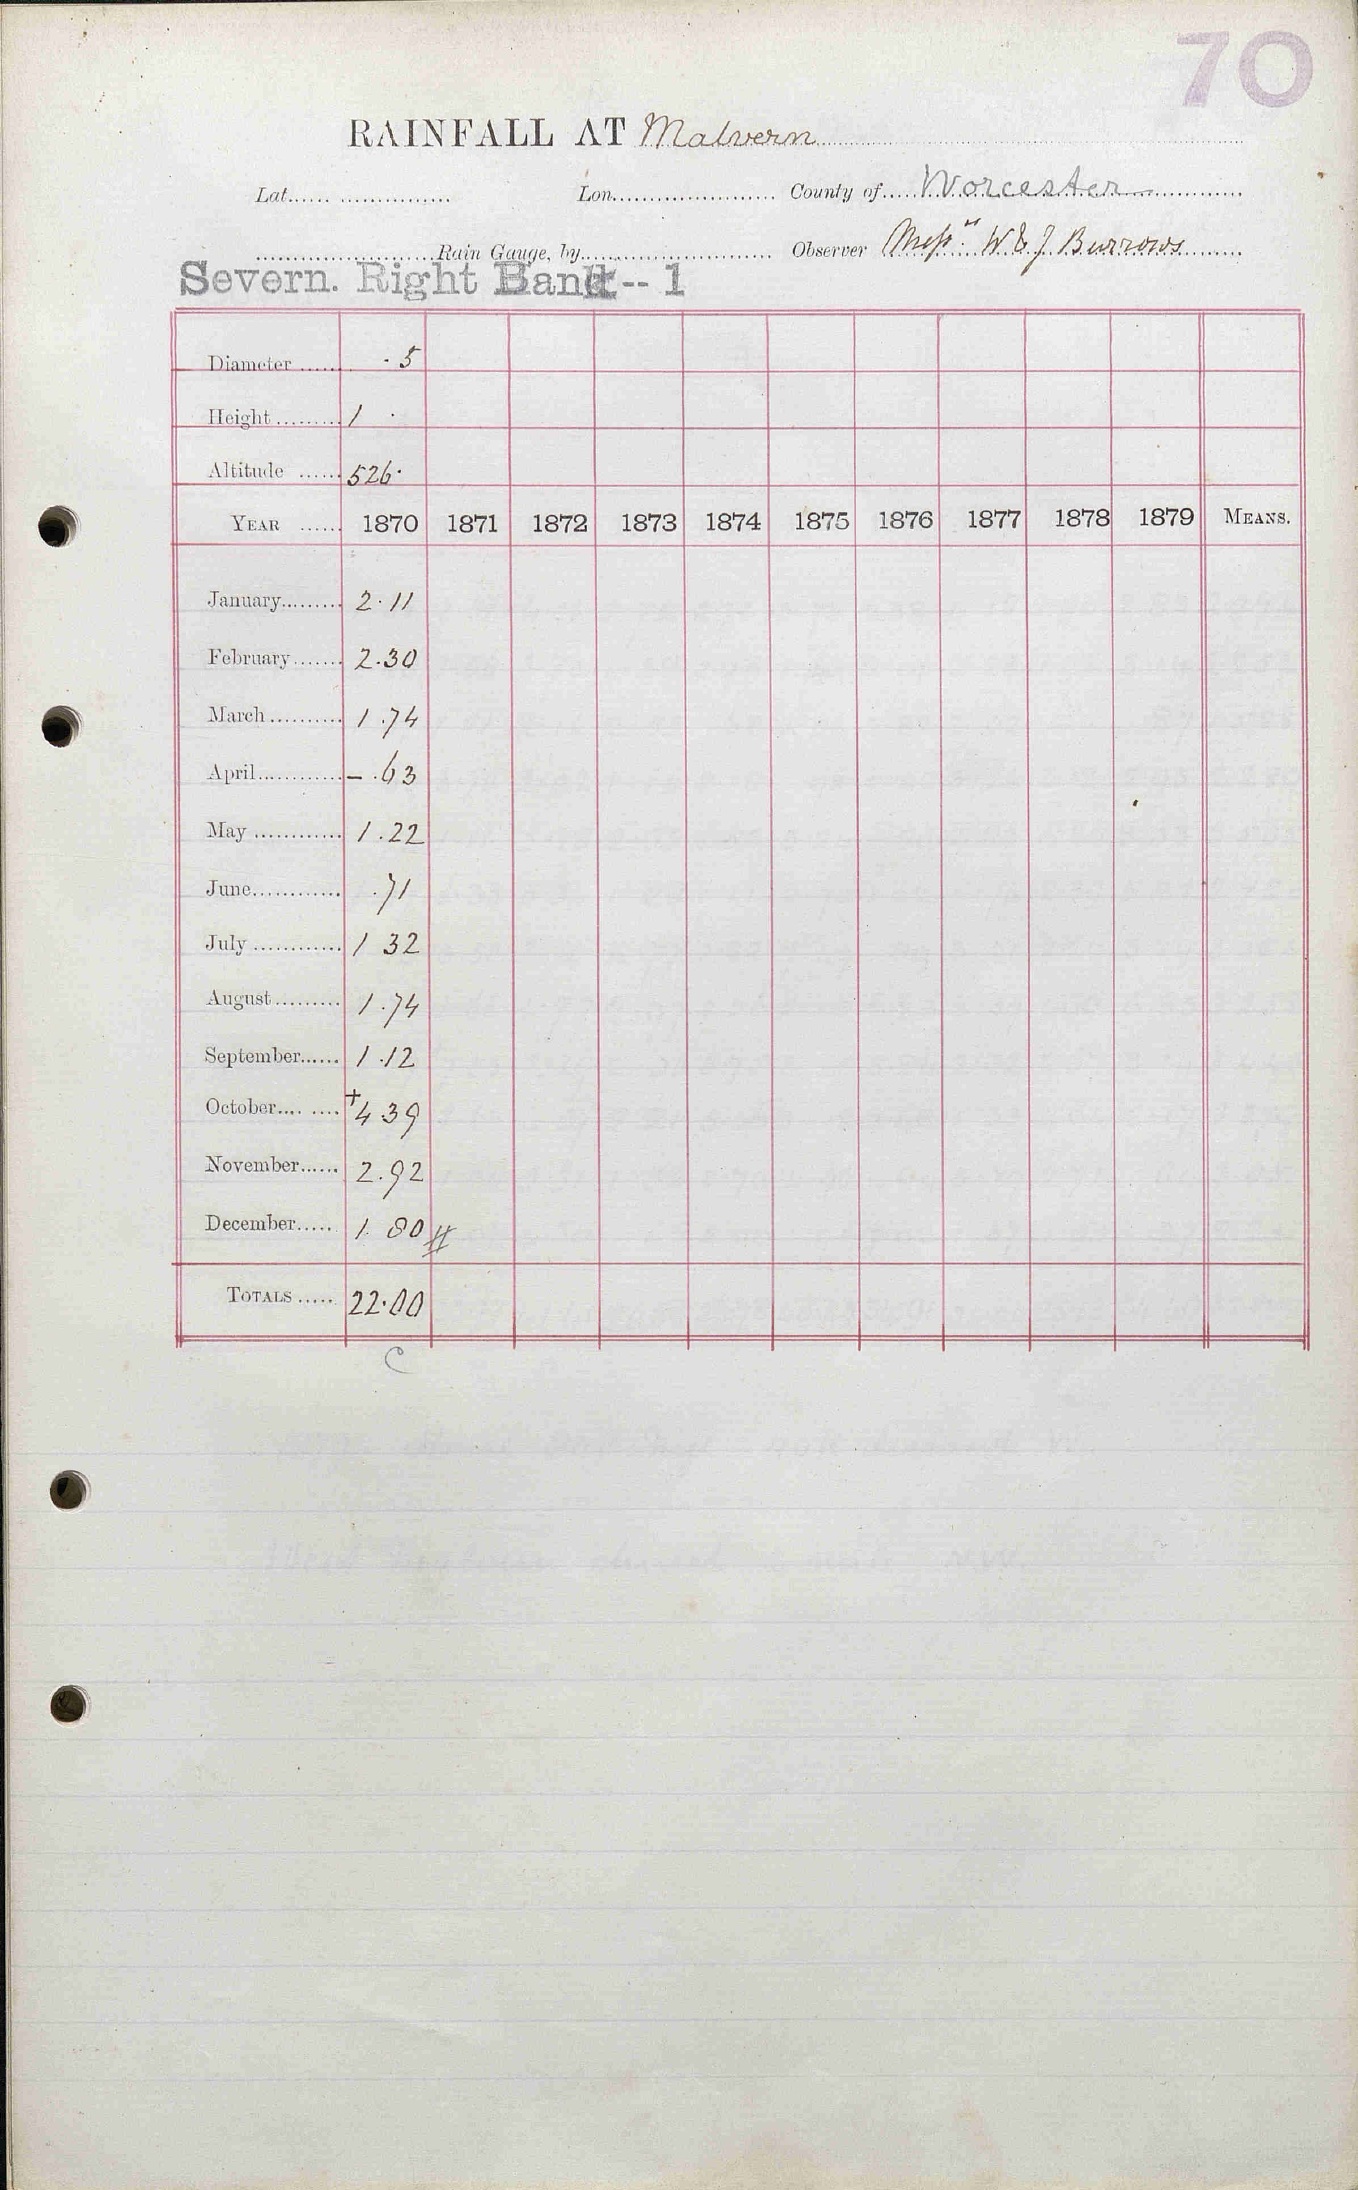 70
RAINFALL AT Malvern
Lat. Lon. County of Worcester
Rain Gauge, by Observer Messrs W & J Burrows
Severn. Right Bank -- 1
Diameter ·5
Height 1 ·
Altitude 526·
YEAR 1870 1871 1872 1873 1874 1875 1876 1877 1878 1879 MEANS.
January 2·11
February 2.30
March 1.74
April – .63
May 1.22
June .71
July 1 32
August 1.74
September 1.12
October + 4 39
November 2.92
December 1 80 #
TOTALS 22·00
C